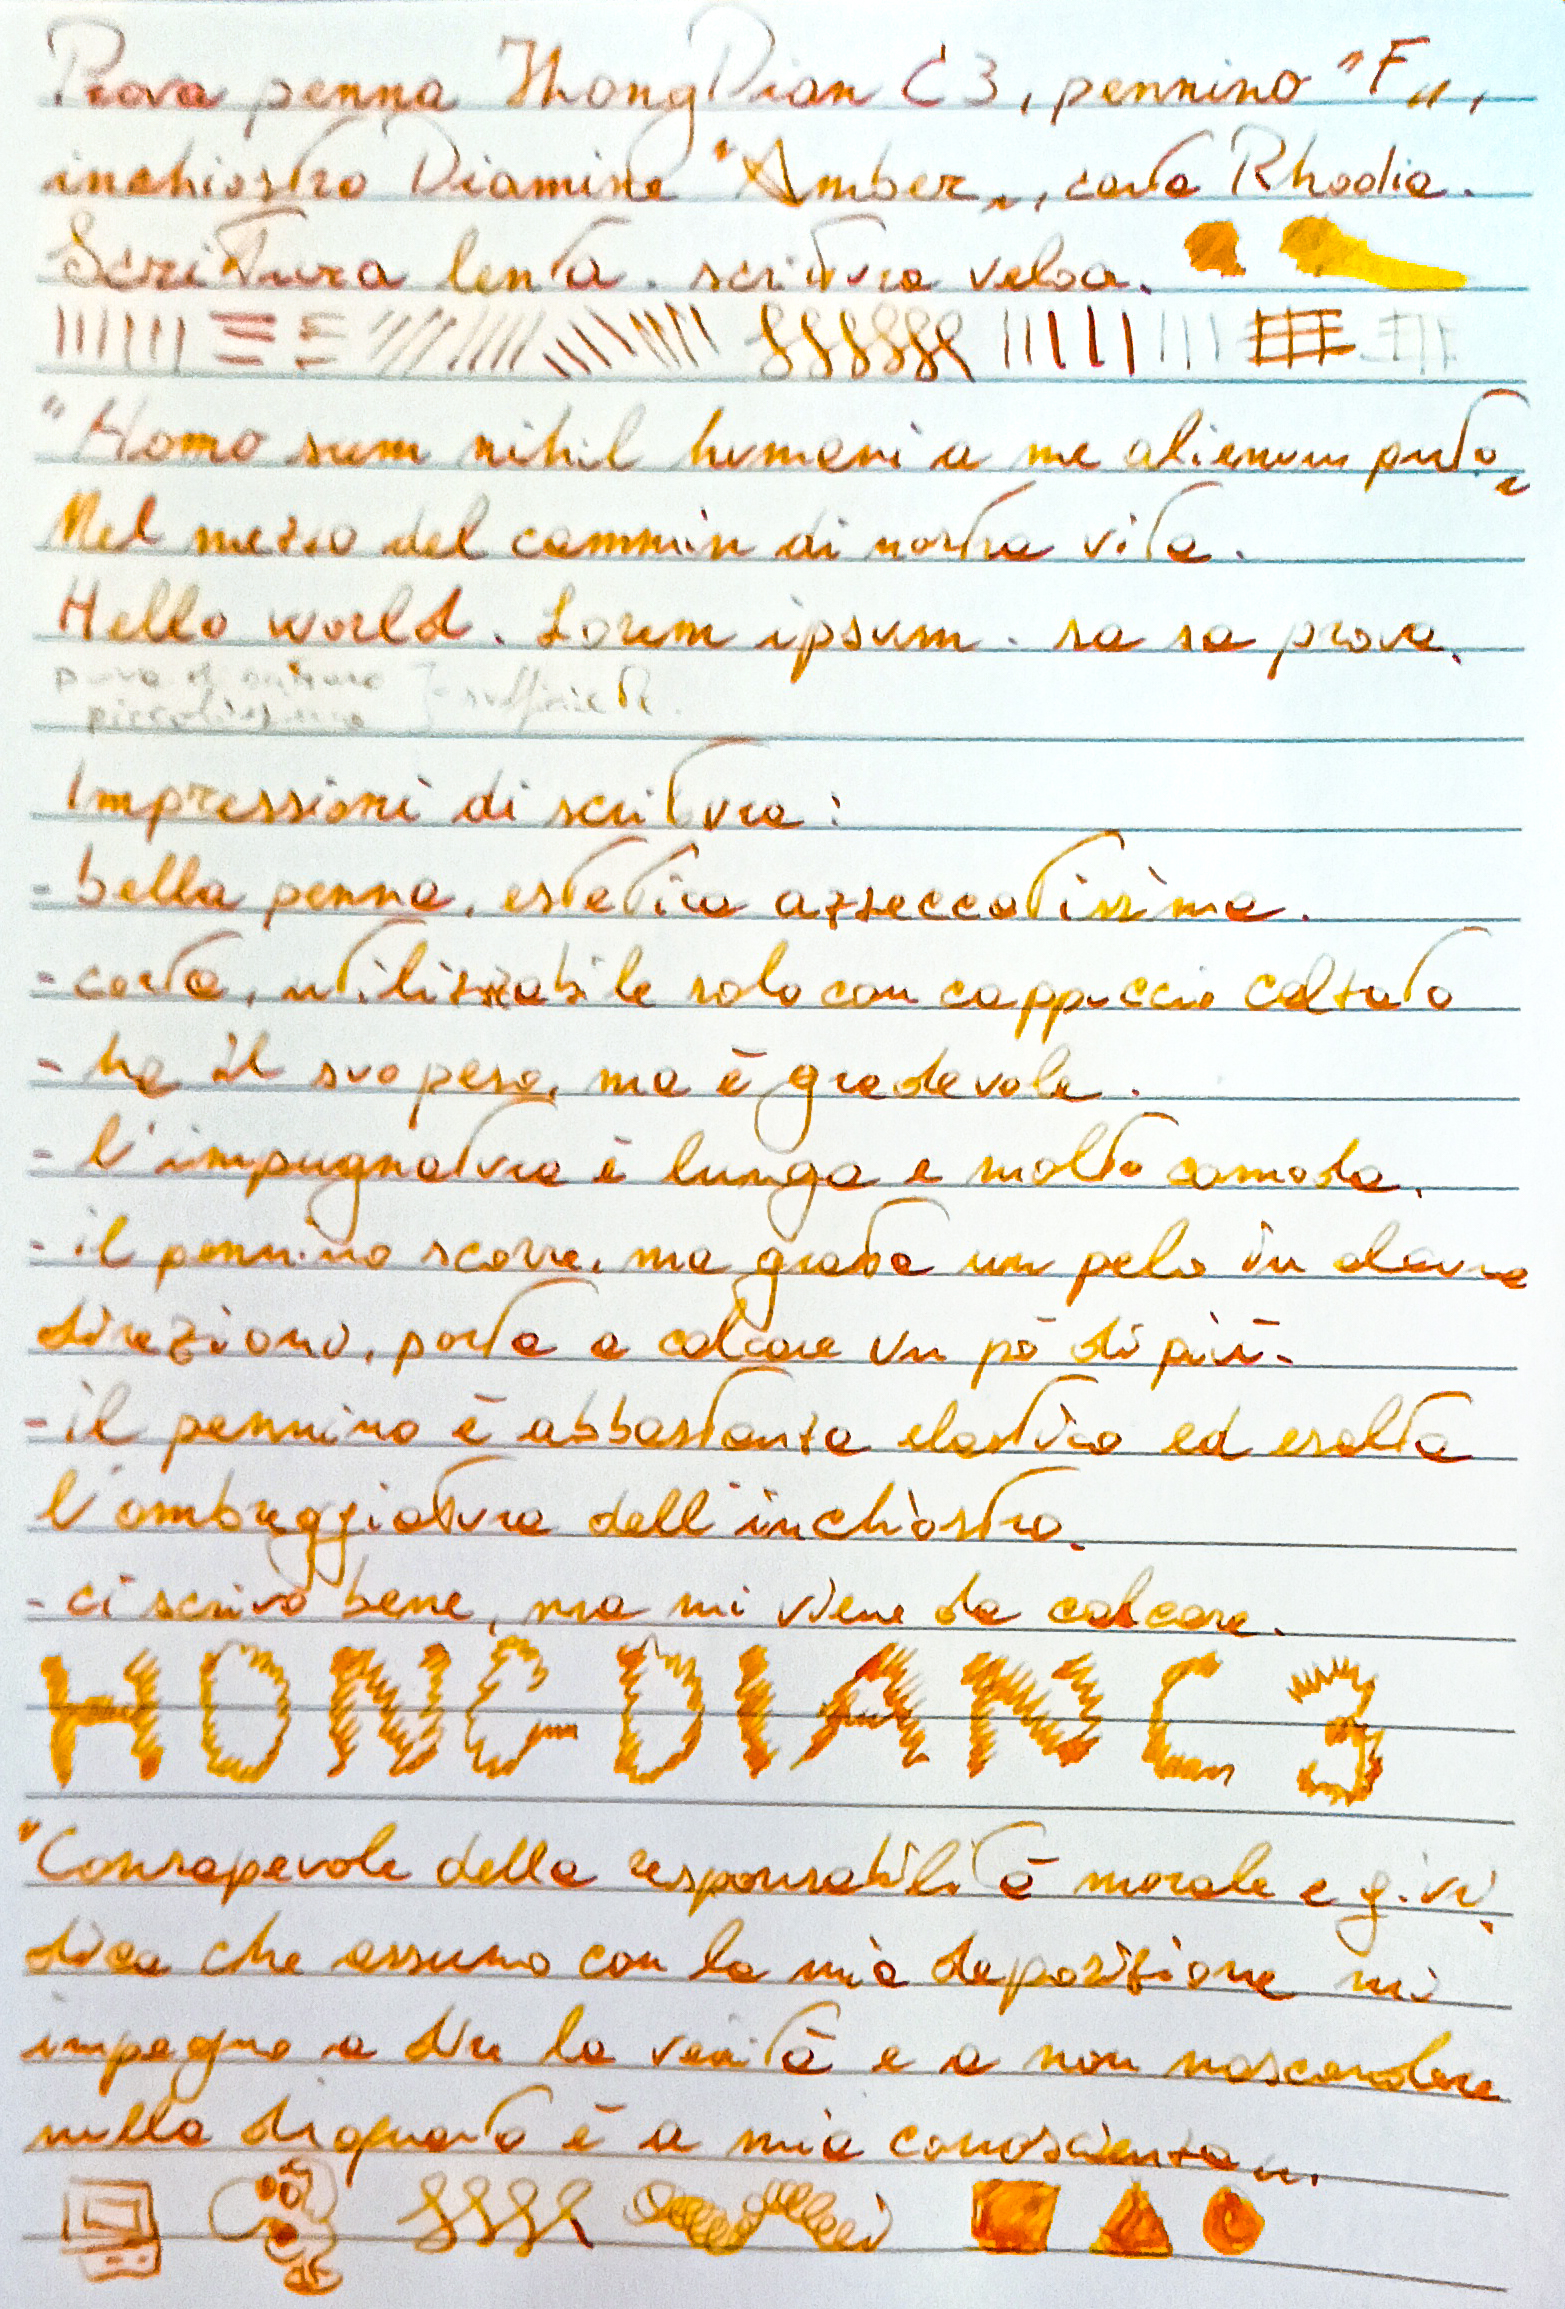 Prova penna HongDian C3, pennino "F",
inchiostro Diamine "Amber", carta Rhodia.
Scrittura lenta. scrittura veloce.
"Homo sum nihil humani a me alienum puto"
Nel mezzo del cammin di nostra vita.
Hello world. Lorem ipsum. sa sa prova.
prova di scrittura } sufficiente.
piccolissima
Impressioni di scrittura:
- bella penna, estetica azzeccatissima.
- corta, utilizzabile solo con cappuccio calzato
- ha il suo peso, ma è gradevole.
- l'impugnatura è lunga e molto comoda.
- il pennino scorre, ma gratta un pelo in alcune
direzioni, porta a calcare un pò di più.
- il pennino è abbastanza elastico ed esalta
l'ombreggiatura dell'inchiostro.
- ci scrivo bene, ma mi viene da calcare.
HONGDIAN C3
"Consapevole della responsabilità morale e giuri
dica che assumo con la mia deposizione mi
impegno a dire la verità e a non nascondere
nulla di quanto è a mia conoscenza".